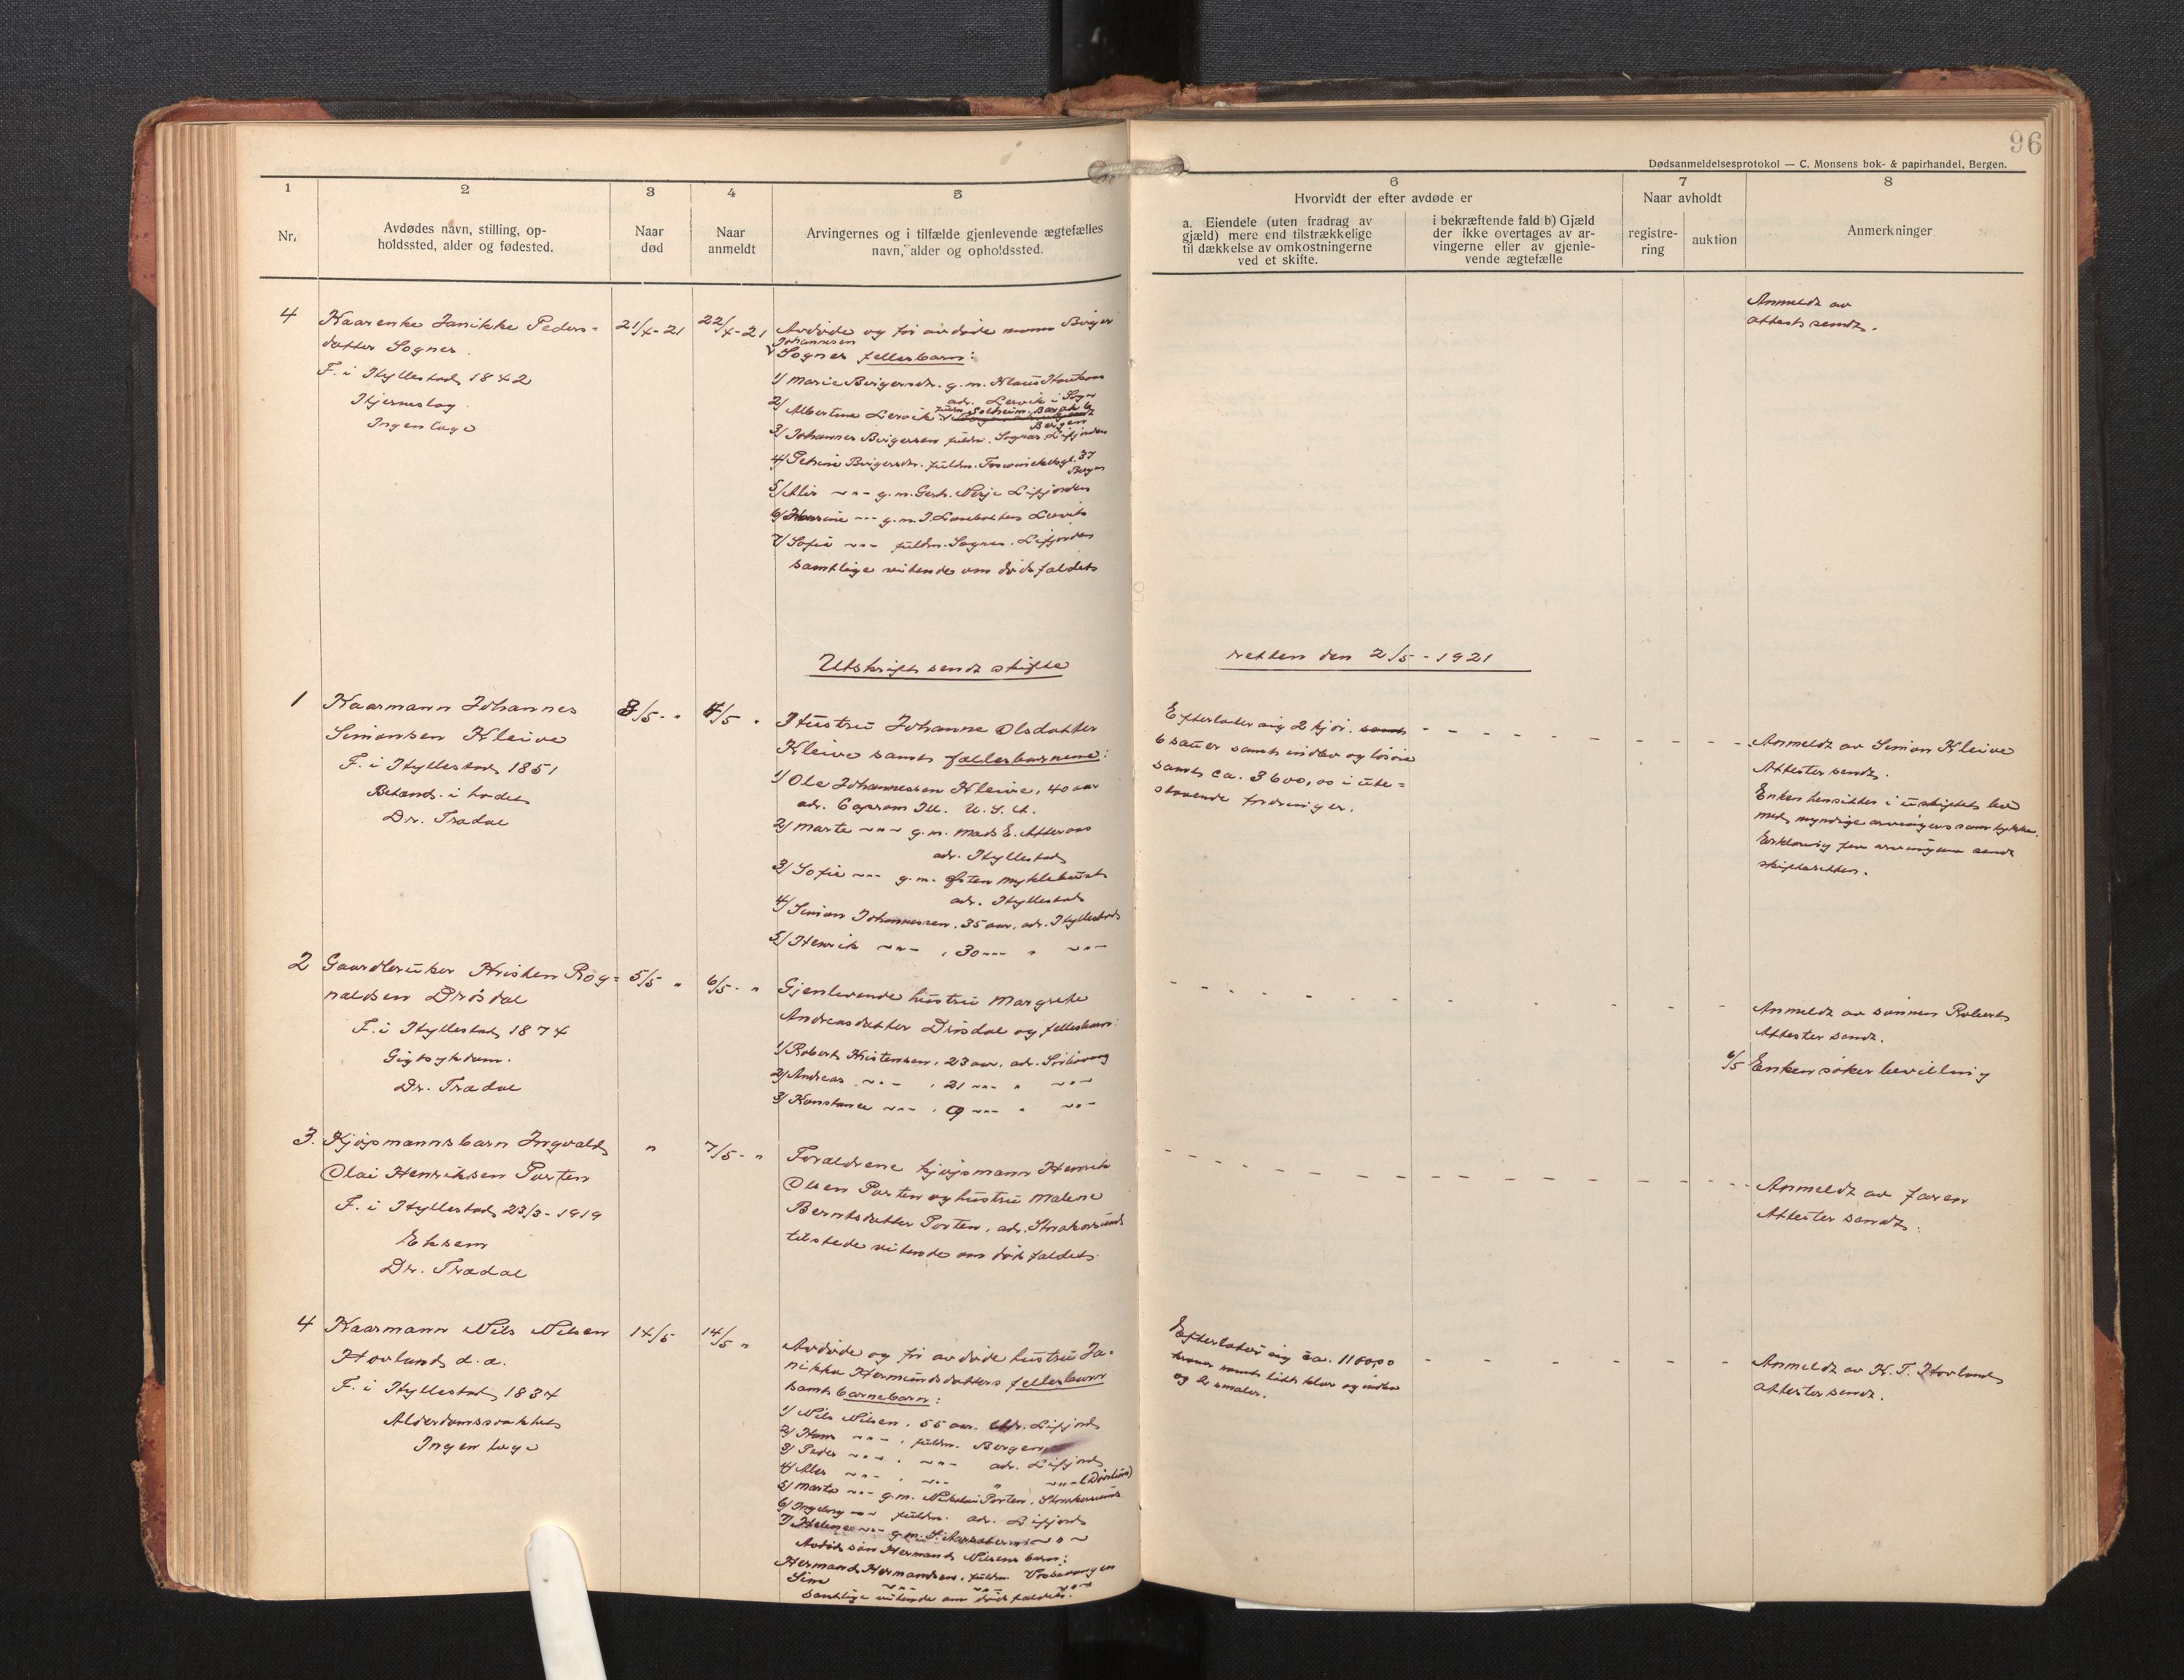 96
Dødsanmeldelsesprotokol — C. Monsens bok- & papirhandel, Bergen.
1
2
3
4
5
6
7
8
Nr.
Avdødes navn, stilling, op-
holdssted, alder og fødested.
Naar
død
Naar
anmeldt
Arvingernes og i tilfælde gjenlevende ægtefælles
navn, alder og opholdssted.
Hvorvidt der efter avdøde er
a. Eiendele (uten fradrag av
gjæld) mere end tilstrækkelige
til dækkelse av omkostningerne
ved et skifte.
i bekræftende fald b) Gjæld
der ikke overtages av ar-
vingerne eller av gjenle-
vende ægtefælle
Naar avholdt
registre-
ring
auktion
Anmerkninger
4
Kaarenke Janikke Peders-
datter Sognes.
F. i Hyllestad 1842
Hjerneslag.
Ingen læge
21/4-21
22/4-21
Avdøde og før avdøde mann Birger
Johannesen
Sognes fellesbarn:
1/ Marie Birgersdr. g.m. Klaus
adr. Lervik i Sogn
2/ Albertine Lervik
Solheim
Bergen
3/ Johannes Birgersen fuldm. Sognes Lifjorden
4/ Petrine Birgersdr. fuldm. 37
Bergen
5/ g.m. Gert. Nesje Lifjorden
6/ g.m. J. Lervik
7/ Sofie fuldm. Sognes. Lifjorden
samtlige vitende om dødsfaldet
Anmeldt av
attest sendt.
Utskrift sendt skifte
retten den 2/5-1921
1
Kaarmann Johannes
Simonsen Kleive
F. i Hyllestad 1851
Betænd. i hodet
Dr. Trædal
3/5 - "
4/5 "
Hustru Johanne Olsdatter
Kleive samt fællesbarnene:
1/ Ole Johannessen Kleive, 40 aar
adr. Ill. U.S.A.
2/ Marta -"- g.m. Mads E. Atteraas
adr. Hyllestad
3/ Sofie -"- g.m. Østen Myklebust
adr. Hyllestad
4/ Simon Johannessen, 35 aar, adr. Hyllestad
5/ Henrik -"-, 30 -"- " -"-
Efterlater sig 2 kjør. samt
6 sauer samt indbo og løsøre
samt ca. 3600,00 i ute-
staaende fordringer.
Anmeldt av Simon Kleive
Attester sendt.
Enken hensitter i uskiftet bo
med myndige arvingers samtykke.
Erklæring fra arvingene sendt
skifteretten.
2
Gaardbruker Kristen Rog-
naldsen Drøsdal
F. i Hyllestad 1874
Gigtsykdom.
Dr. Trædal
5/5 "
6/5 - "
Gjenlevende hustru Margrete
Andreasdatter Drøsdal og fellesbarn:
1/ Robert Kristensen, 23 aar, adr. Sørbøvaag
2/ Andreas -"-, 21 -"- " -"-
3/ Konstanse -"-, 9 -"- " -"-
Anmeldt av sønnen Robert
Attester sendt.
6/5 Enken søker bevilling
3.
Kjøpmannsbarn Ingvald
Olai Henriksen Porten
F. i Hyllestad 23/3-1919
Eksem
Dr. Trædal
"
7/5 - "
Forældrene kjøpmann Henrik
Olsen Porten og hustru Malene
Berntsdatter Porten, adr. Straakersund
tilstede vitende om dødsfaldet.
Anmeldt av faren
Attester sendt.
4
Kaarmann Nils Nilsen
Hovland d.æ.
F. i Hyllestad 1834
Alderdomssvakhet
Ingen læge
14/5
14/5 "
Avdøde og før avdøde hustru Ja-
nikka Hermundsdatters fellesbarn
samt barnebarn:
1/ Nils Nilsen, 55 aar. adr. Lifjord
2/ Hans -"-, fuldm. Bergen
3/ Peder -"-, -"- adr. Lifjord
4/ -"-, -"- " -"-
5/ Marta -"- g.m. Nikolai Porten, Straakersund
6/ Ingeborg -"- fuldm. adr. Lifjord
7/ Helene -"- g.m.
Avdød søn Hermand Nilsens barn:
Hermand Hermandsen, fuldm. Vossevangen
Sine -"- -"- -"-
samtlige vitende om dødsfaldet.
Efterlater sig ca. 1100,00
kroner samt litt klær og indbo
og 2 smaler.
Anmeldt av K. T. Hovland
attester sendt.